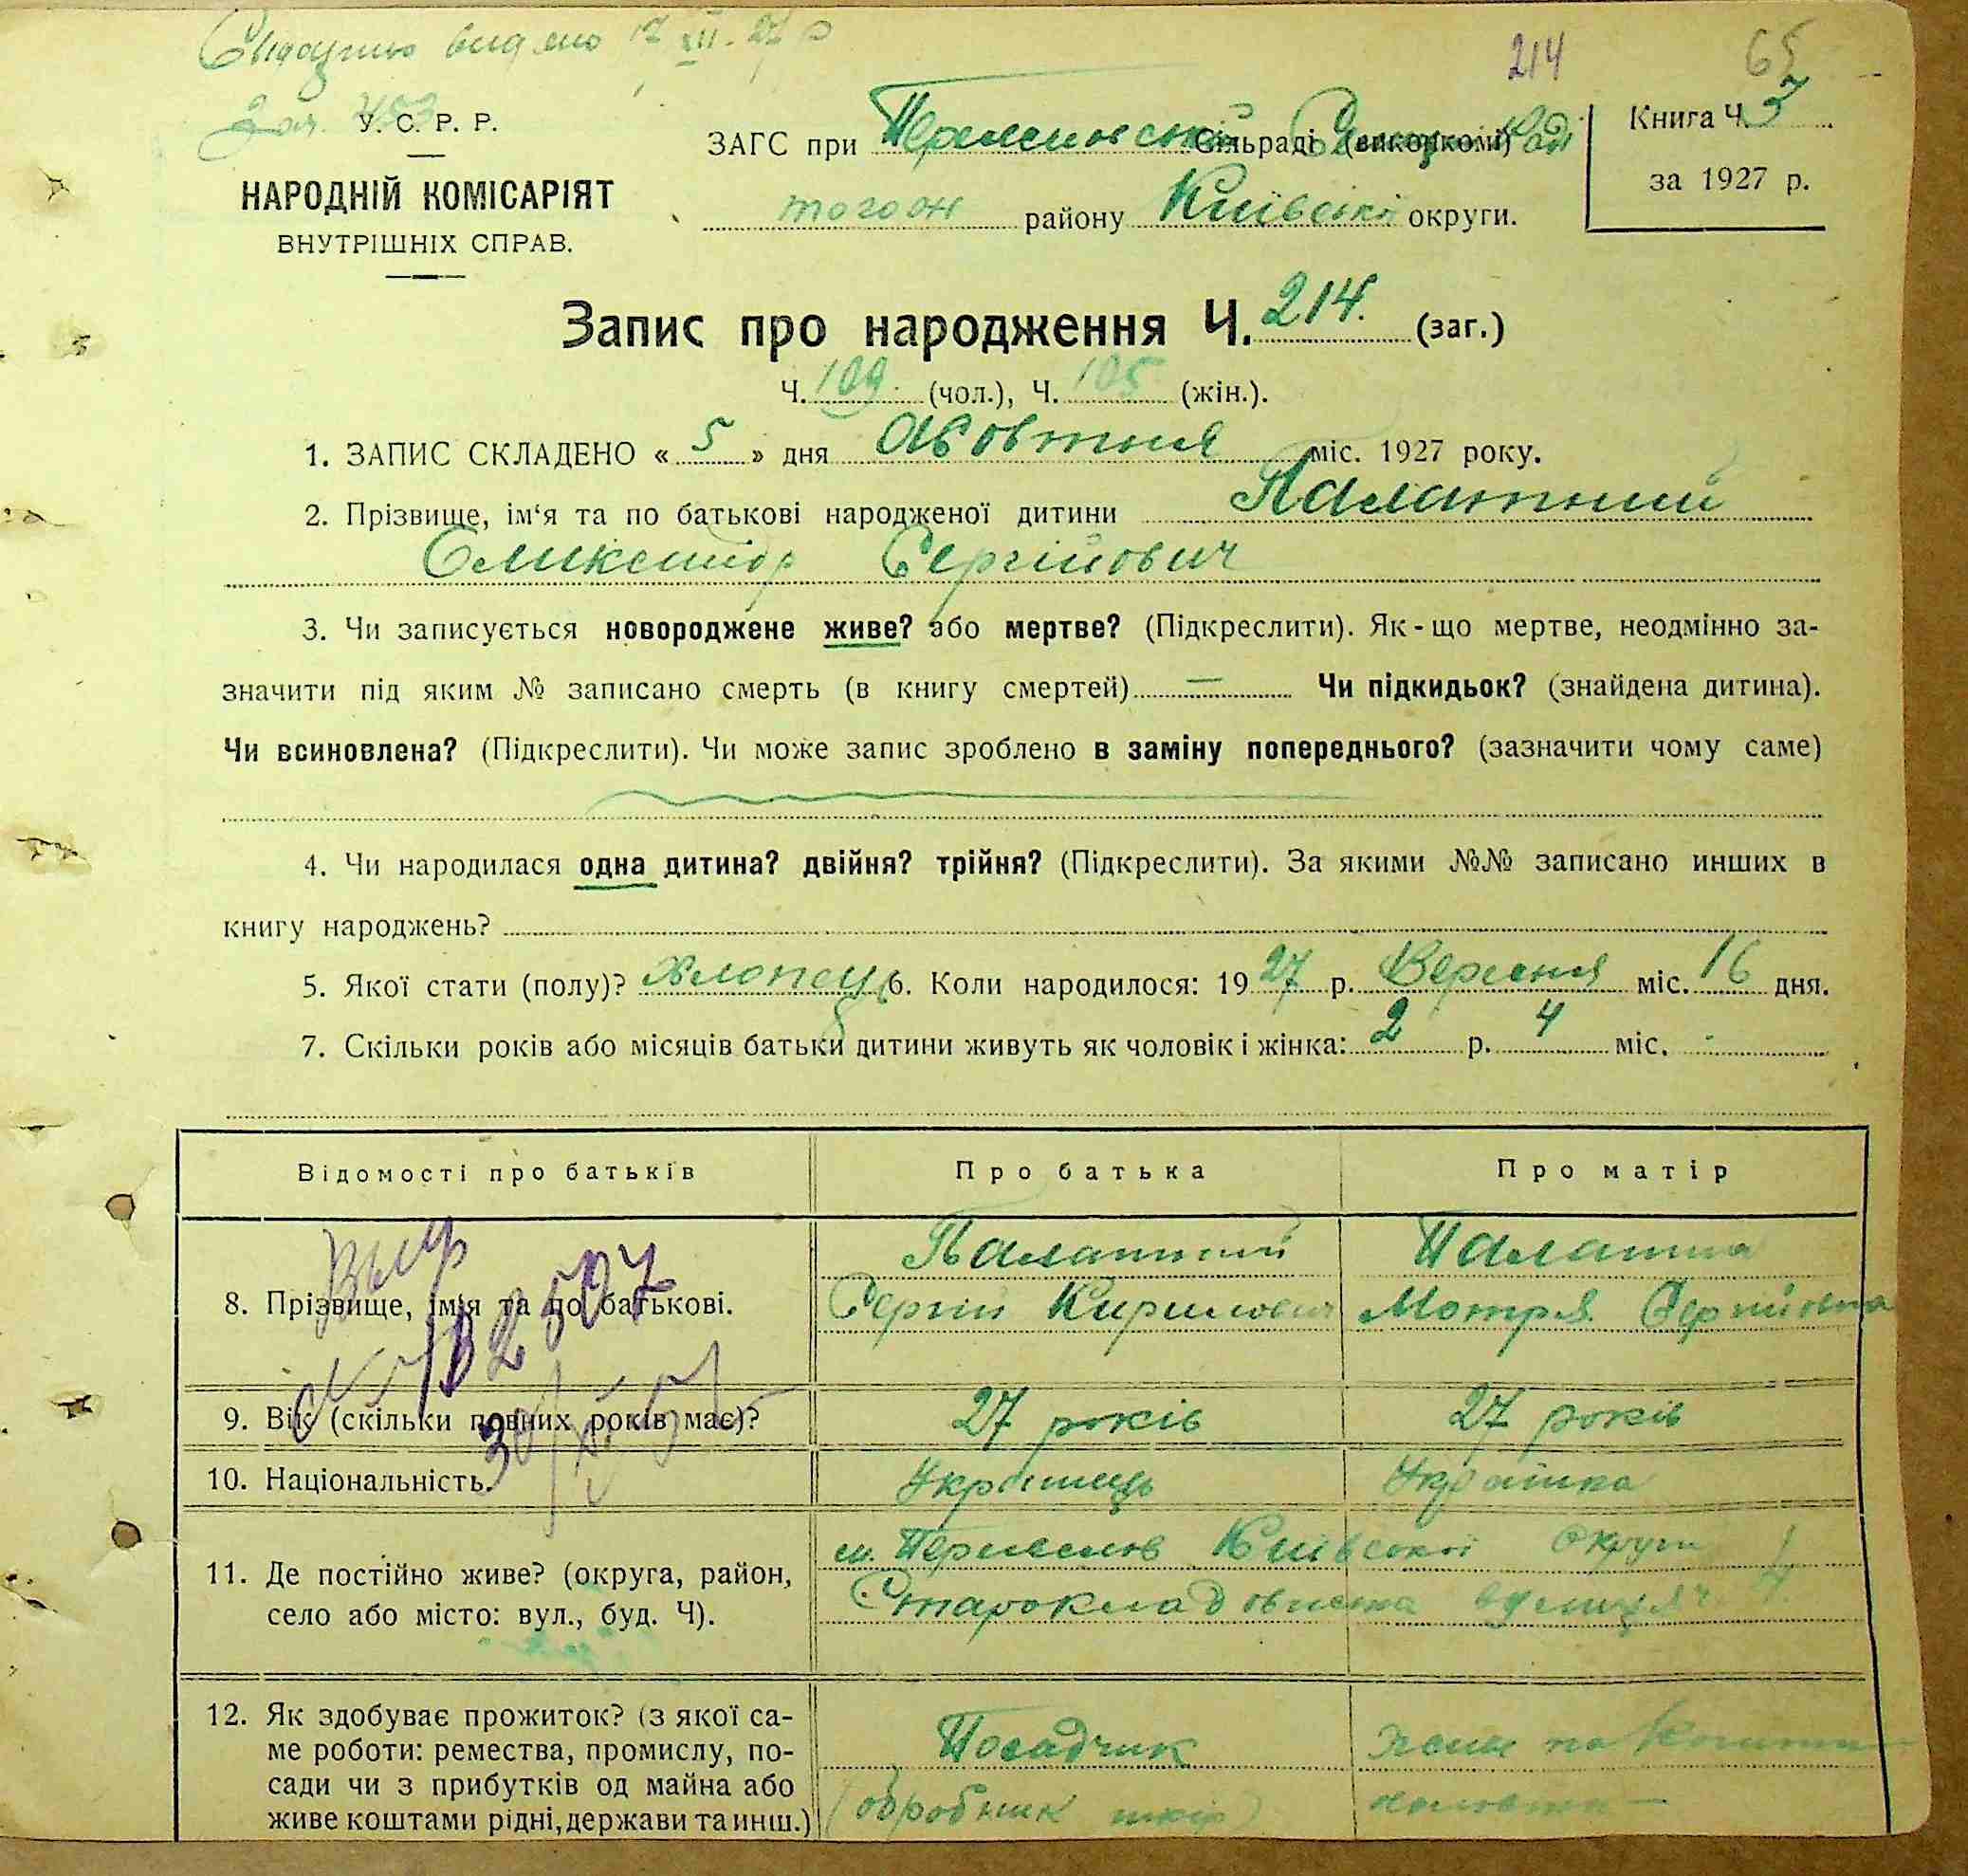 видано 12 XII. 27 р
214 65
У. С. Р. Р.
ЗАГС при Сільраді (виконкомі)
Книга Ч. 3
НАРОДНІЙ КОМІСАРІЯТ
того ж району Київської округи.
за 1927 р.
ВНУТРІШНІХ СПРАВ.
Запис про народження Ч. 214. (заг.)
Ч. 109 (чол.), Ч. 105 (жін.).
1. ЗАПИС СКЛАДЕНО « 5 » дня Жовтня міс. 1927 року.
2. Прізвище, ім‘я та по батькові народженої дитини Палатний
Олександр Сергійович
3. Чи записується новороджене живе? або мертве? (Підкреслити). Як-що мертве, неодмінно за-
значити під яким № записано смерть (в книгу смертей) — Чи підкидьок? (знайдена дитина).
Чи всиновлена? (Підкреслити). Чи може запис зроблено в заміну попереднього? (зазначити чому саме)
4. Чи народилася одна дитина? двійня? трійня? (Підкреслити). За якими №№ записано инших в
книгу народжень?
5. Якої стати (полу)? Хлопець 6. Коли народилося: 1927 р. Вересня міс. 16 дня.
7. Скільки років або місяців батьки дитини живуть як чоловік і жінка: 2 р. 4 міс.
Відомості про батьків Про батька Про матір
Палатний Палатна
8. Прізвище, ім'я та по батькові. Сергій Кирилович Мотря Сергіївна
9. Вік (скільки повних років має)? 27 років 27 років
10. Національність. Українець Українка
м. Переяслов Київської округи
11. Де постійно живе? (округа, район,
село або місто: вул., буд. Ч). Старокладовищна вулиця ч. 4.
12. Як здобуває прожиток? (з якої са-
ме роботи: ремества, промислу, по- Посадчик Живе на кошти
сади чи з прибутків од майна або
живе коштами рідні, держави та инш.) (обробник шкір) чоловіка —